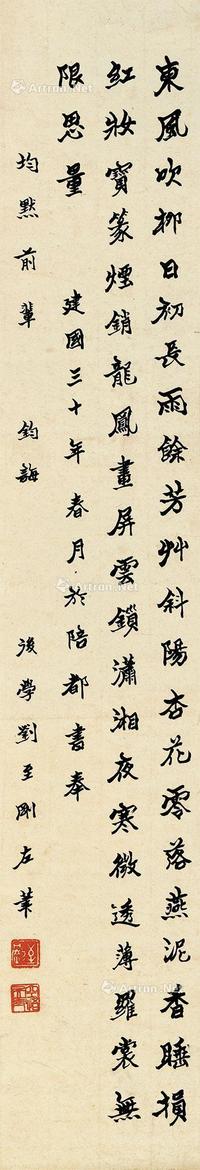 東風吹柳日初長雨餘芳艸斜陽杏花零落燕泥香睡損
紅妝寶篆煙銷龍鳳畫屏雲鎖瀟湘夜寒微透薄羅裳無
限思量 建國三十年春月於陪都書奉
均默前輩 鈞誨 後學劉至剛左筆
Artron.Net